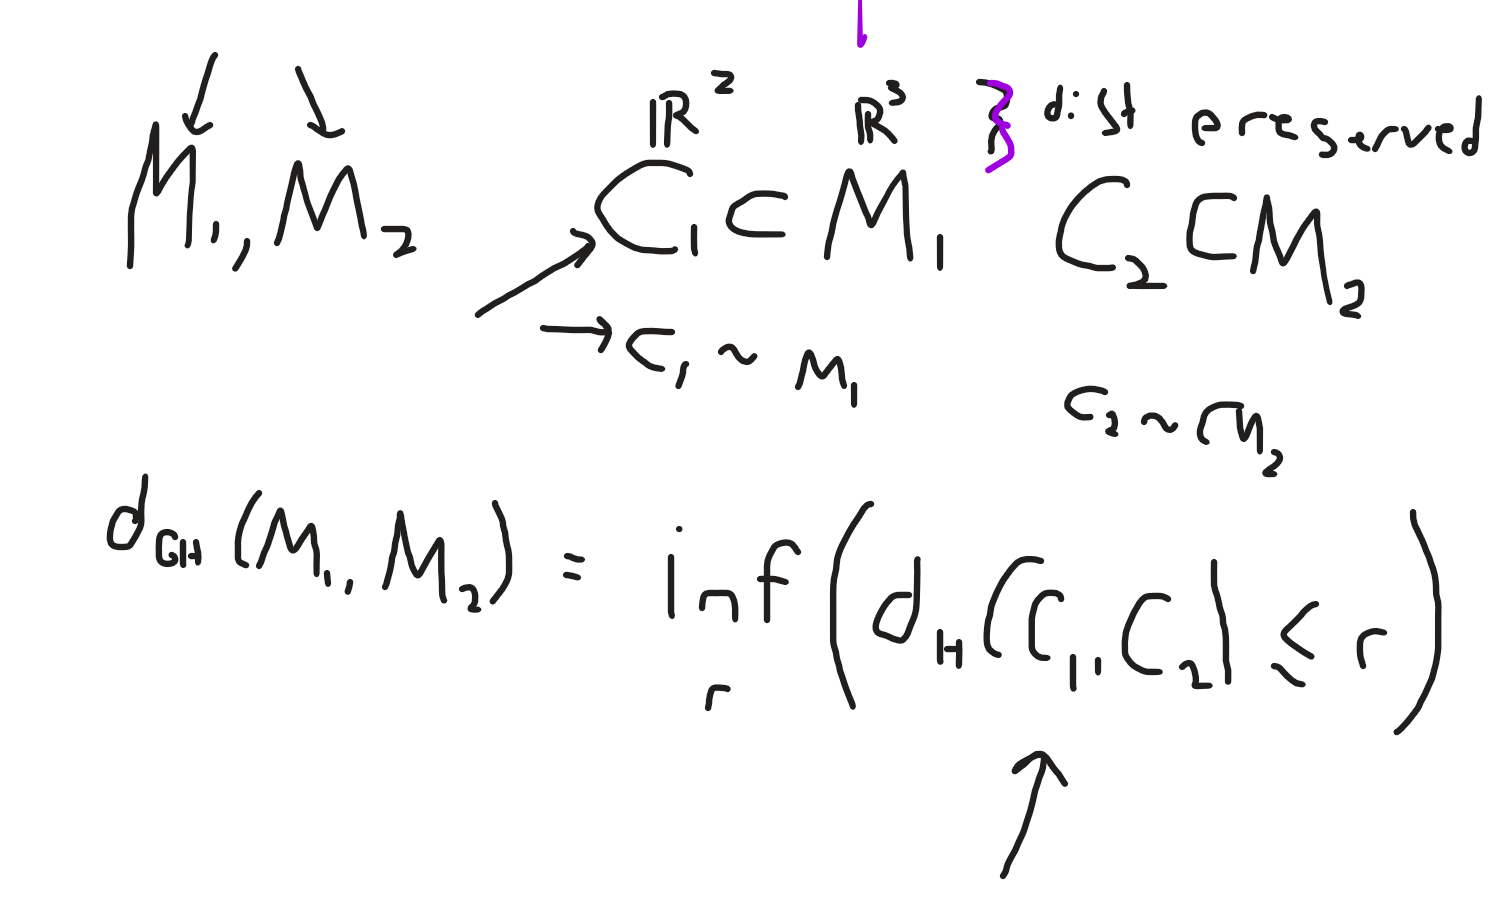 ℝ² ℝ³ } dist preserved
M₁, M₂ C₁ ⊂ M₁ C₂ ⊂ M₂
→ C₁ ~ M₁
C₂ ~ M₂
d_GH (M₁, M₂) = inf_r (d_H(C₁, C₂) ≤ r)